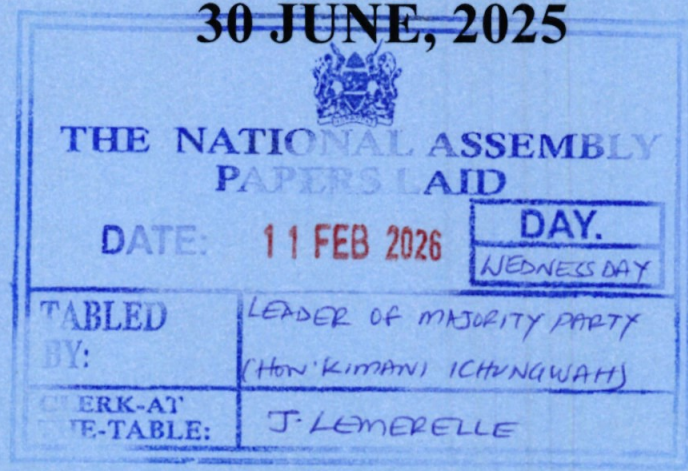 30 JUNE, 2025
THE NATIONAL ASSEMBLY
PAPERS LAID
DATE: 11 FEB 2026
DAY.
WEDNESSDAY
TABLED
BY:
LEADER OF MAJORITY PARTY
(HON' KIMANI ICHUNGWAH)
CLERK-AT
THE-TABLE:
J. LEMERELLE